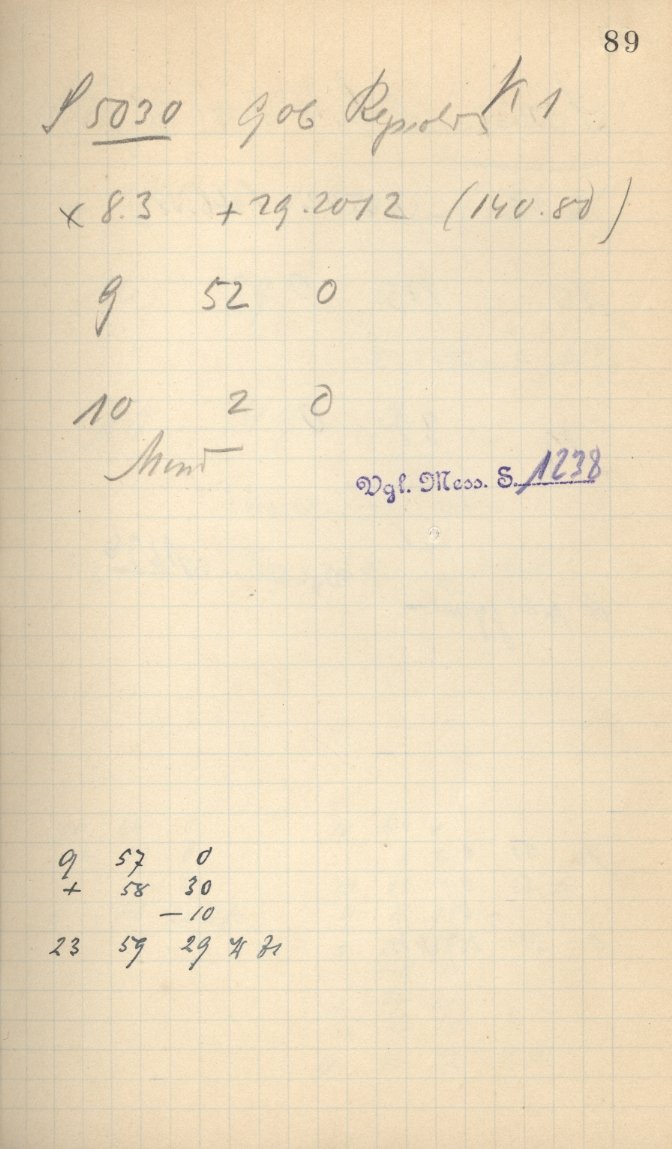 89
5030 906 K 1
× 8.3 + 29.2012 (140.80)
9 52 0
10 2 0
Vgl. Mess. S. 1238
9 57 0
+ 58 30
− 10
23 59 29